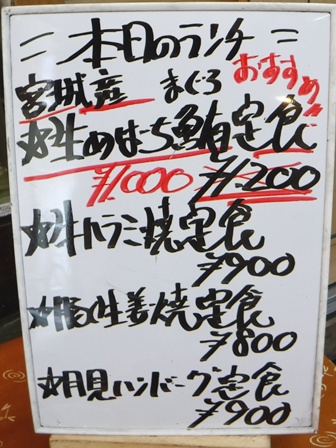 = 本日のランチ =
宮城産 まぐろ おすすめ!!
☆生めばち鮪定食
¥1000 ¥1200
☆牛ハラミ焼定食
¥900
☆豚生姜焼定食
¥800
☆月見ハンバーグ定食
¥900